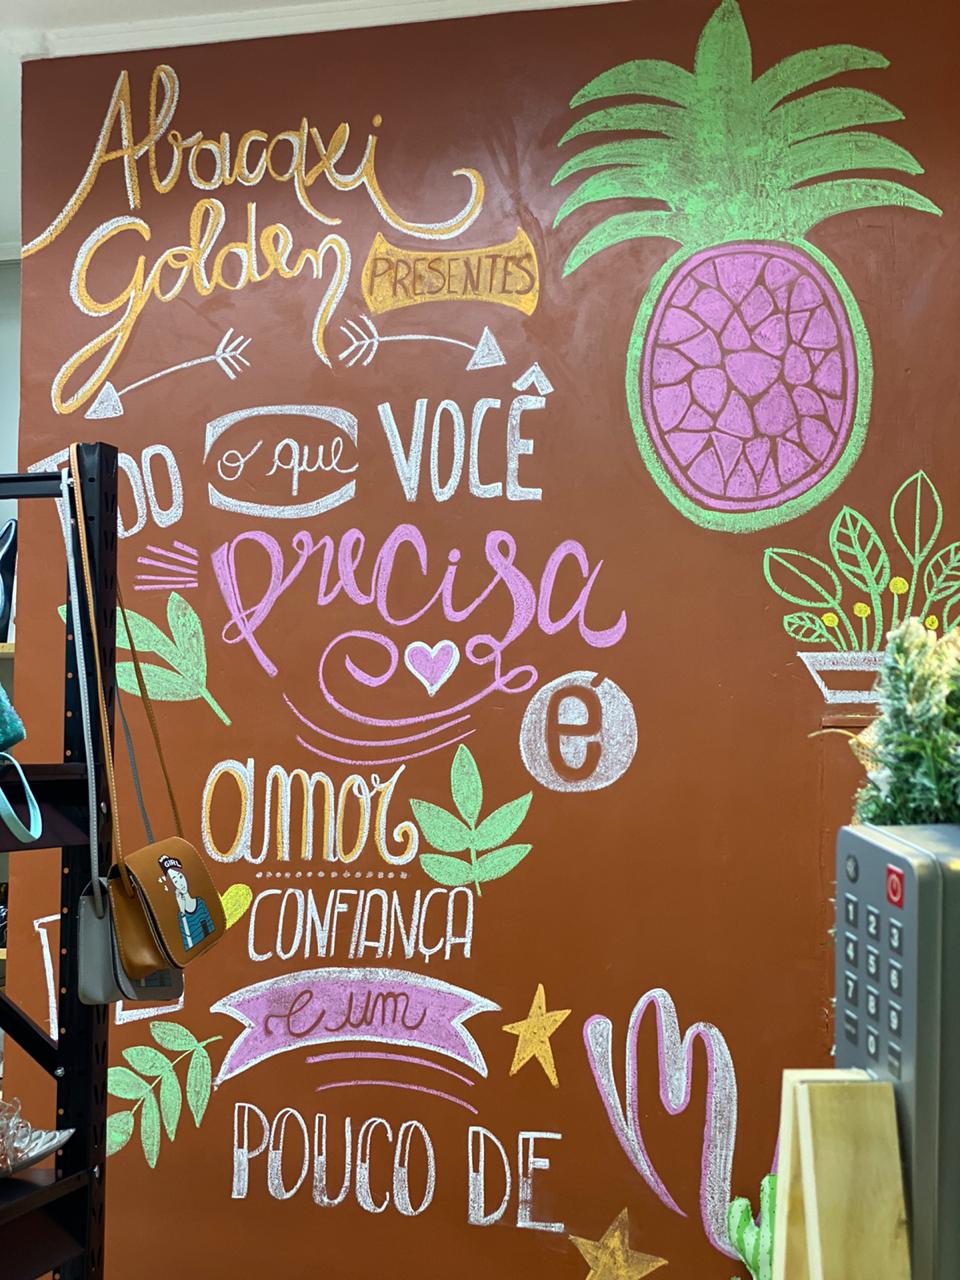 Abacaxi
Golden PRESENTES
o que VOCÊ
precisa
é
amor
CONFIANÇA
e um
POUCO DE
GIRL
1 2 3
4 5 6
7 8 9
0